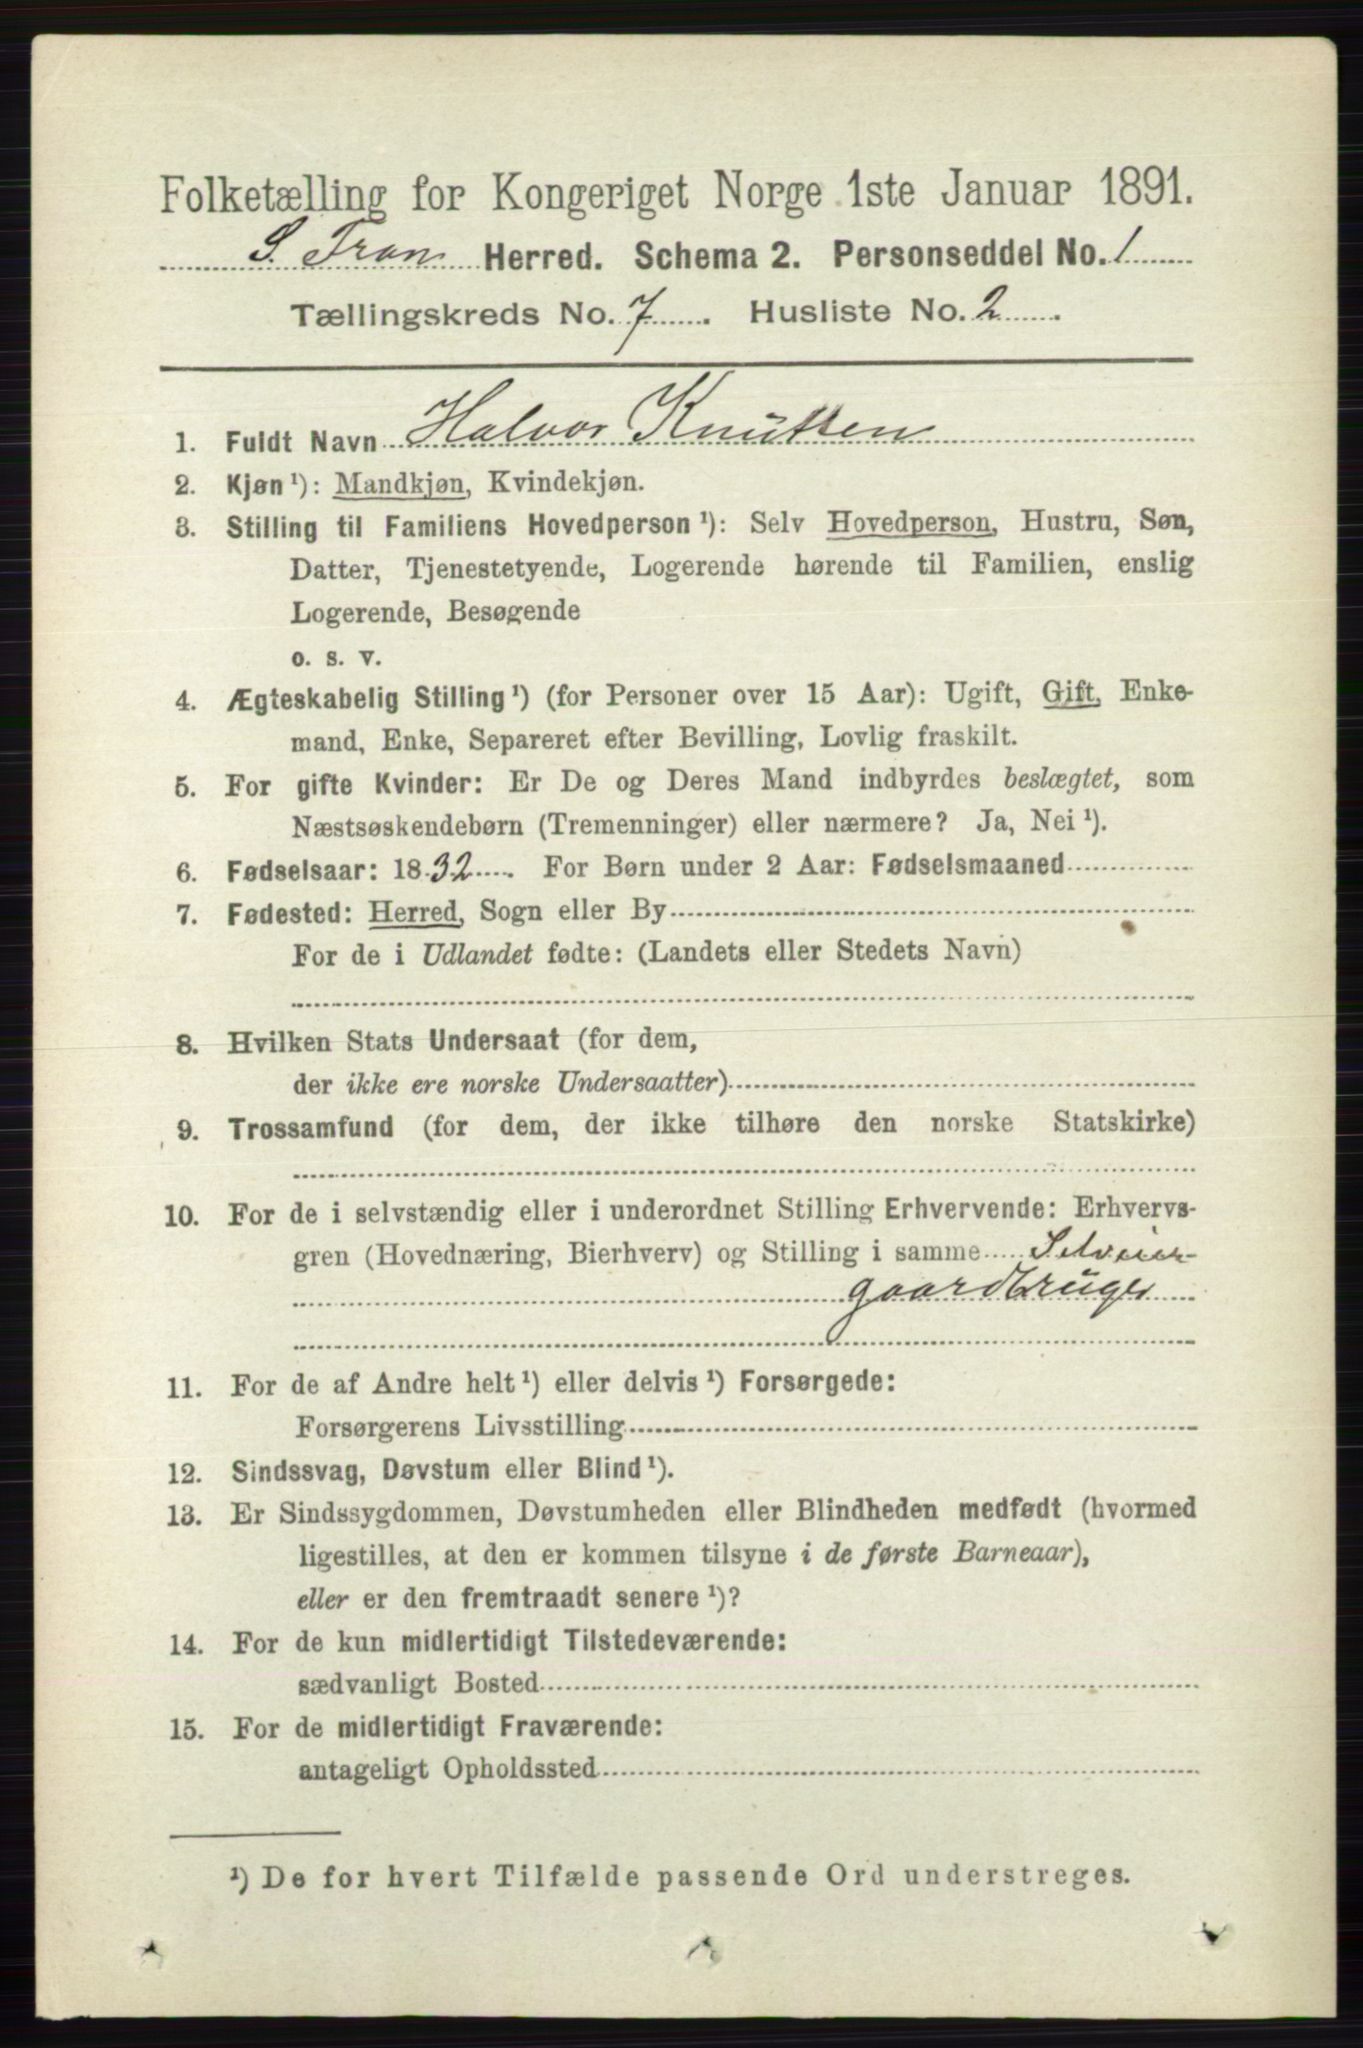 Folketælling for Kongeriget Norge 1ste Januar 1891.
S. Fron Herred. Schema 2. Personseddel No. 1
Tællingskreds No. 7. Husliste No. 2.
1. Fuldt Navn Halvor Knutsen
2. Kjøn ¹): Mandkjøn, Kvindekjøn.
3. Stilling til Familiens Hovedperson ¹): Selv Hovedperson, Hustru, Søn,
Datter, Tjenestetyende, Logerende hørende til Familien, enslig
Logerende, Besøgende
o. s. v.
4. Ægteskabelig Stilling ¹) (for Personer over 15 Aar): Ugift, Gift, Enke-
mand, Enke, Separeret efter Bevilling, Lovlig fraskilt.
5. For gifte Kvinder: Er De og Deres Mand indbyrdes beslægtet, som
Næstsøskendebørn (Tremenninger) eller nærmere? Ja, Nei ¹).
6. Fødselsaar: 1832. For Børn under 2 Aar: Fødselsmaaned
7. Fødested: Herred, Sogn eller By
For de i Udlandet fødte: (Landets eller Stedets Navn)
8. Hvilken Stats Undersaat (for dem,
der ikke ere norske Undersaatter)
9. Trossamfund (for dem, der ikke tilhøre den norske Statskirke)
10. For de i selvstændig eller i underordnet Stilling Erhvervende: Erhvervs-
gren (Hovednæring, Bierhverv) og Stilling i samme Selveier
gaardbruger
11. For de af Andre helt ¹) eller delvis ¹) Forsørgede:
Forsørgerens Livsstilling
12. Sindssvag, Døvstum eller Blind ¹).
13. Er Sindssygdommen, Døvstumheden eller Blindheden medfødt (hvormed
ligestilles, at den er kommen tilsyne i de første Barneaar),
eller er den fremtraadt senere ¹)?
14. For de kun midlertidigt Tilstedeværende:
sædvanligt Bosted
15. For de midlertidigt Fraværende:
antageligt Opholdssted
¹) De for hvert Tilfælde passende Ord understreges.